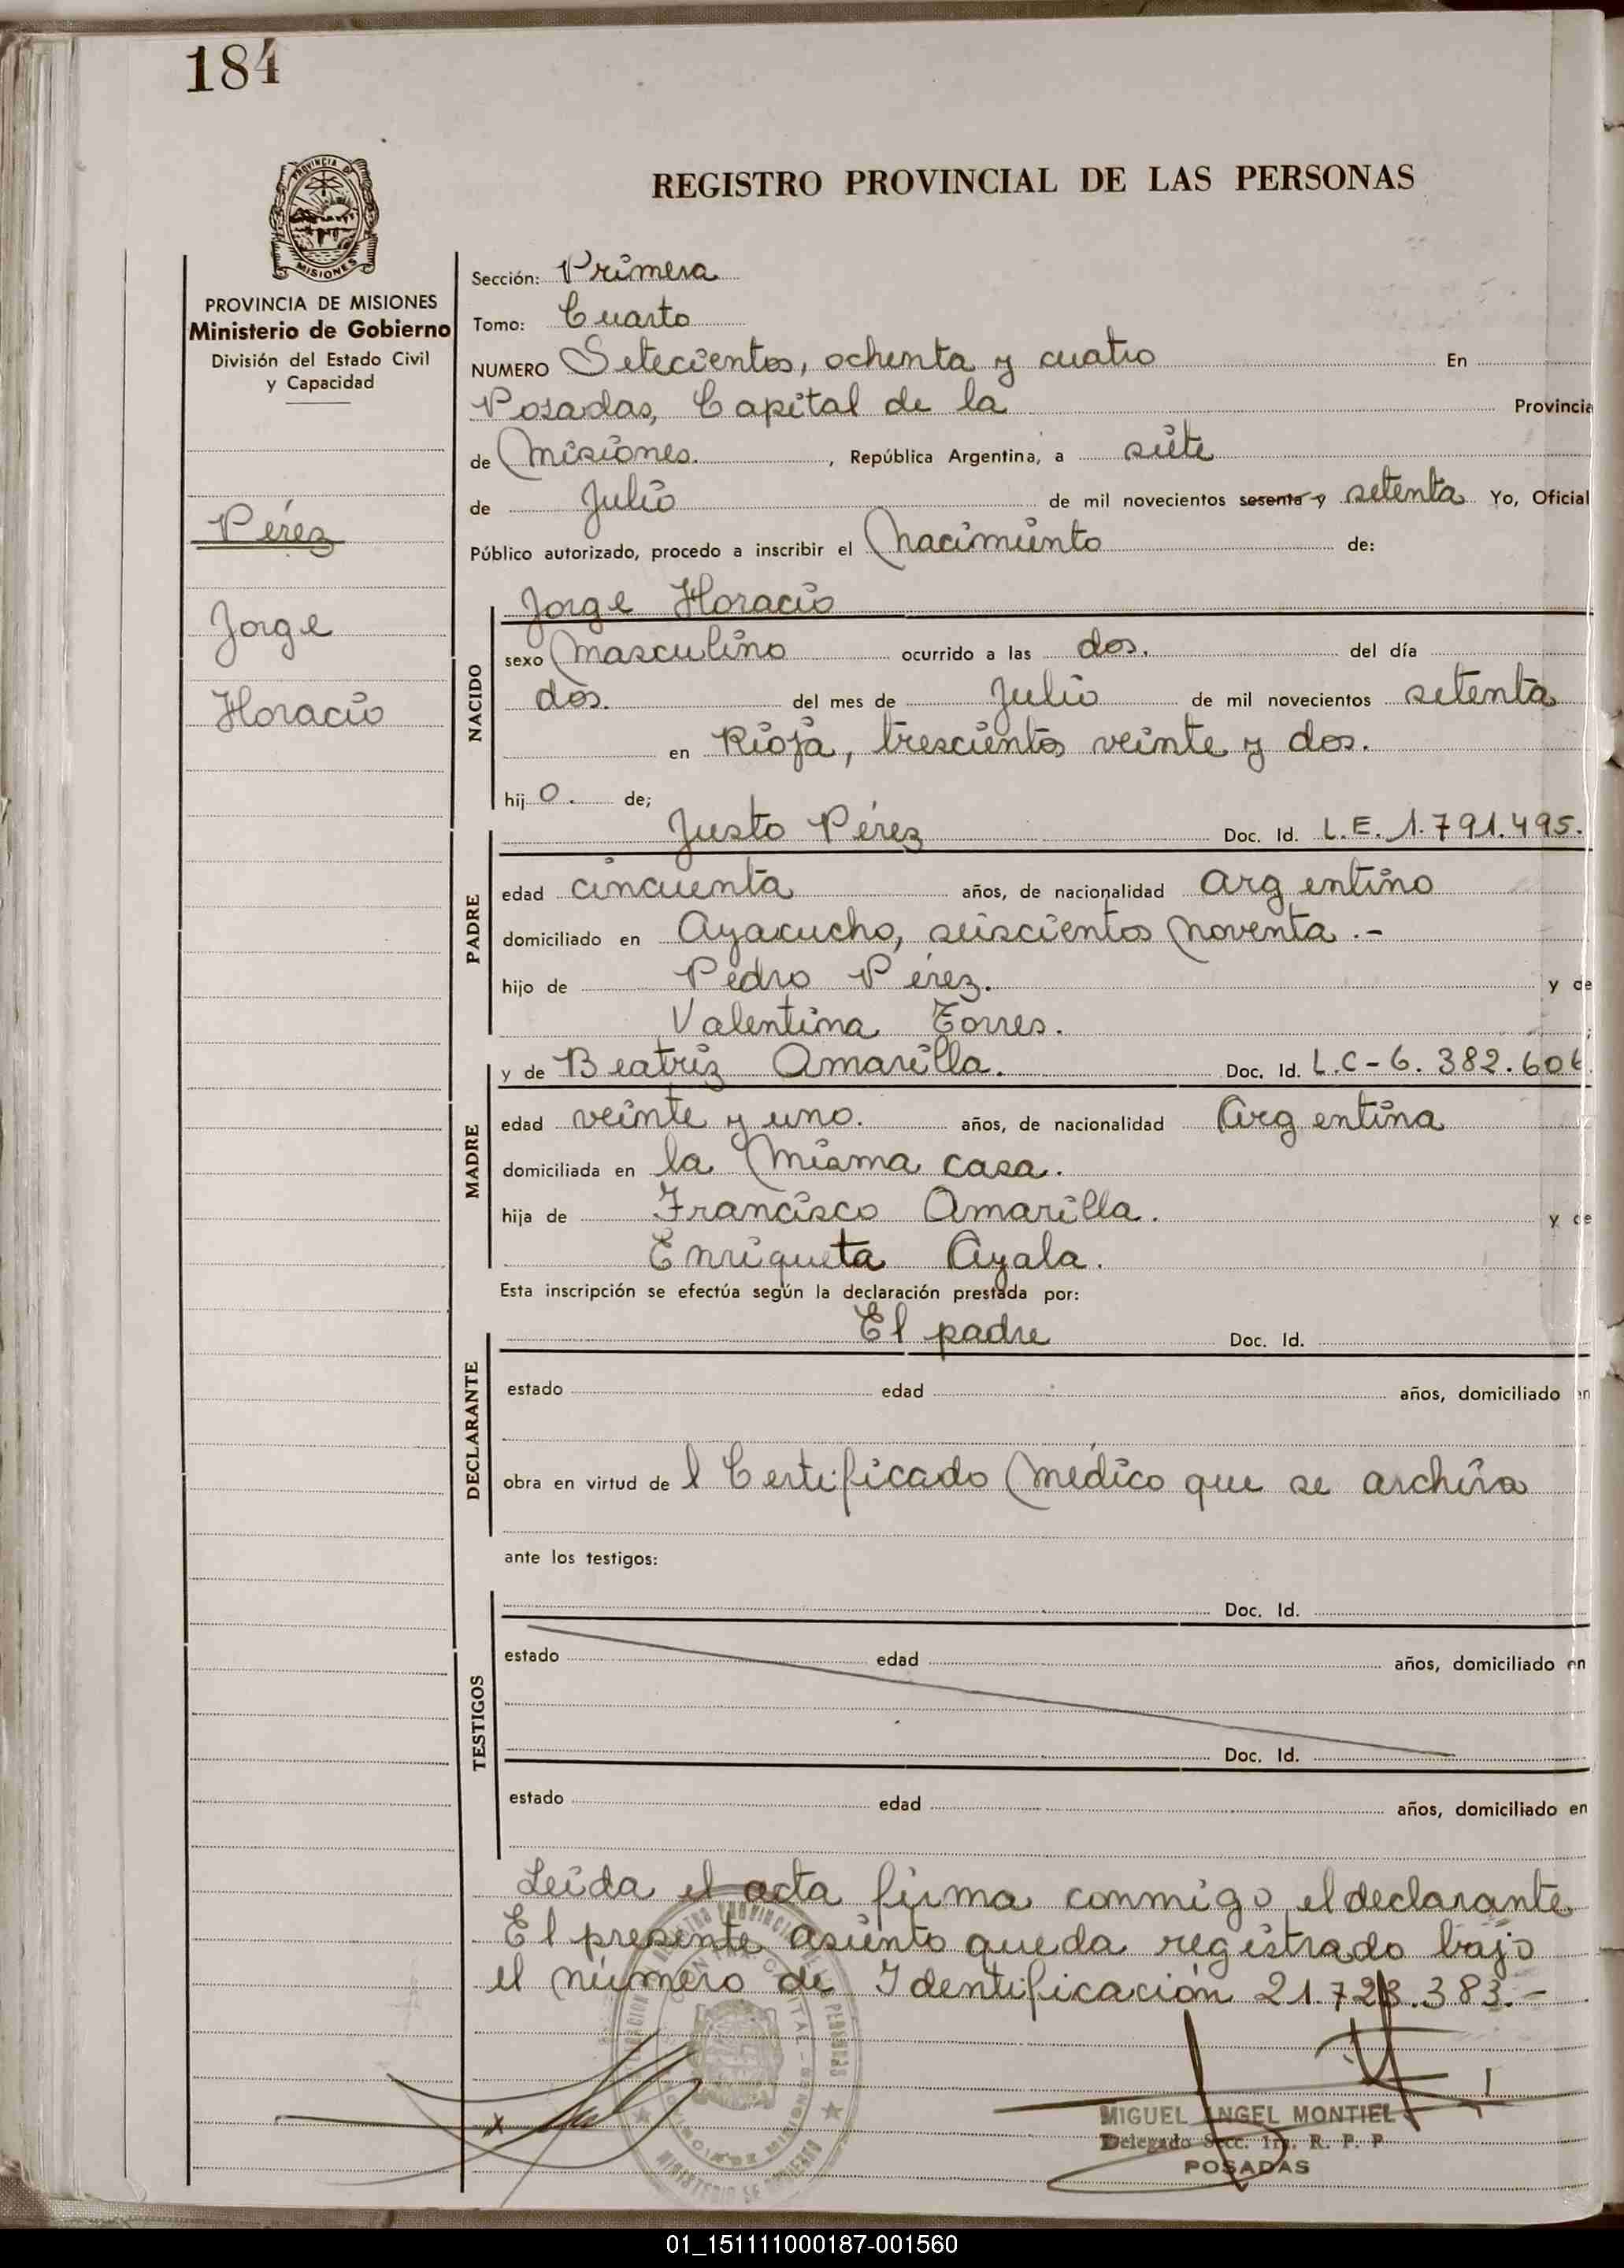 184
PROVINCIA DE
MISIONES
REGISTRO PROVINCIAL DE LAS PERSONAS
PROVINCIA DE MISIONES
Ministerio de Gobierno
División del Estado Civil
y Capacidad
Pérez
Jorge
Horacio
Sección: Primera
Tomo: Cuarto
NUMERO Setecientos, ochenta y cuatro En
Posadas, Capital de la Provincia
de Misiones. , República Argentina, a siete
de Julio de mil novecientos sesenta y setenta Yo, Oficial
Público autorizado, procedo a inscribir el Nacimiento de:
NACIDO
Jorge Horacio
sexo Masculino ocurrido a las dos. del día
dos. del mes de Julio de mil novecientos setenta
en Rioja, trescientos veinte y dos.
hij o. de;
PADRE
Justo Pérez Doc. Id. L.E. 1.791.495.
edad cincuenta años, de nacionalidad Argentino
domiciliado en Ayacucho, seiscientos noventa .-
hijo de Pedro Pérez. y de
Valentina Torres. ;
MADRE
y de Beatriz Amarilla. Doc. Id. L.C-6.382.606.
edad veinte y uno. años, de nacionalidad Argentina
domiciliada en la misma casa.
hija de Francisco Amarilla. y de
Enriqueta Ayala.
Esta inscripción se efectúa según la declaración prestada por:
DECLARANTE
El padre Doc. Id.
estado edad años, domiciliado en
obra en virtud de l Certificado Médico que se archiva
ante los testigos:
TESTIGOS
Doc. Id.
estado edad años, domiciliado en
Doc. Id.
estado edad años, domiciliado en
Leida el acta firma conmigo el declarante
El presente asiento queda registrado bajo
el número de Identificación 21.723.383.-
MIGUEL ANGEL MONTIEL
Delegado Secc. 1ra. R. P. P
POSADAS
01_151111000187-001560